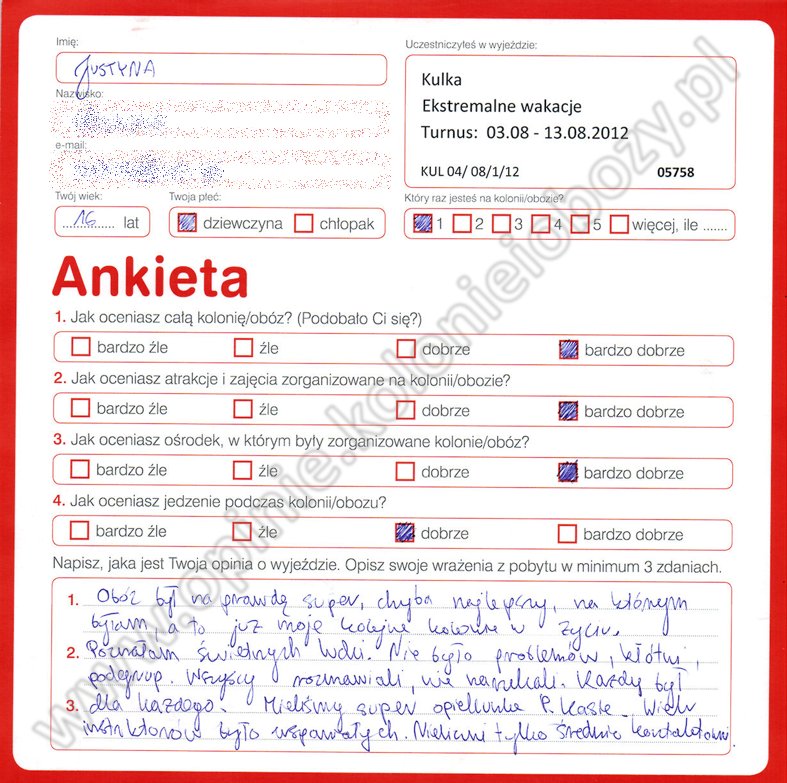 Imię:
Justyna
Nazwisko:
e-mail:
Twój wiek:
16 lat
Twoja płeć:
dziewczyna chłopak
Uczestniczyłeś w wyjeździe:
Kulka
Ekstremalne wakacje
Turnus: 03.08 - 13.08.2012
KUL 04/ 08/1/12 05758
Który raz jesteś na kolonii/obozie?
1 2 3 4 5 więcej, ile .......
Ankieta
1. Jak oceniasz całą kolonię/obóz? (Podobało Ci się?)
bardzo źle źle dobrze bardzo dobrze
2. Jak oceniasz atrakcje i zajęcia zorganizowane na kolonii/obozie?
bardzo źle źle dobrze bardzo dobrze
3. Jak oceniasz ośrodek, w którym były zorganizowane kolonie/obóz?
bardzo źle źle dobrze bardzo dobrze
4. Jak oceniasz jedzenie podczas kolonii/obozu?
bardzo źle źle dobrze bardzo dobrze
Napisz, jaka jest Twoja opinia o wyjeździe. Opisz swoje wrażenia z pobytu w minimum 3 zdaniach.
1. Obóz był na prawdę super, chyba najlepszy, na którym
byłam, a to już moje kolejne kolonie w życiu.
2. Poznałam świetnych ludzi. Nie było problemów, kłótni,
podgrup. Wszyscy rozmawiali, nie narzekali. Każdy był
3. dla każdego. Mieliśmy super opiekunkę P. Kasię. Wielu
instruktorów było wspaniałych. Nieliczni tylko średnio kontaktowni
www.opinie.kolonieiobozy.pl